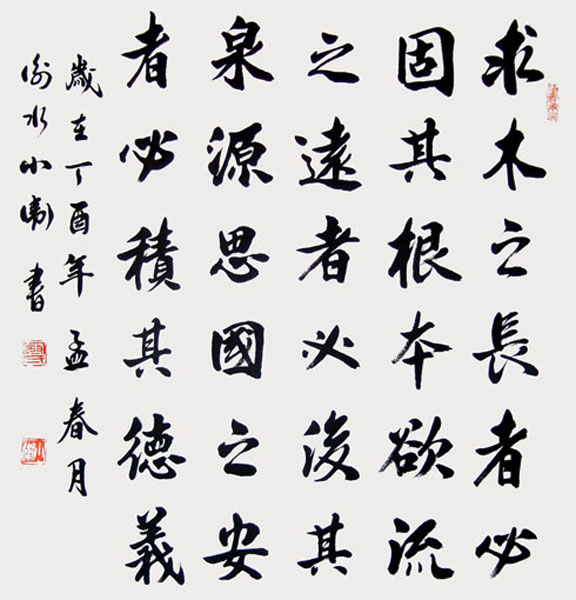 求木之長者必
固其根本欲流
之遠者必浚其
泉源思國之安
者必積其德義
歲在丁酉年孟春月
渝水小書